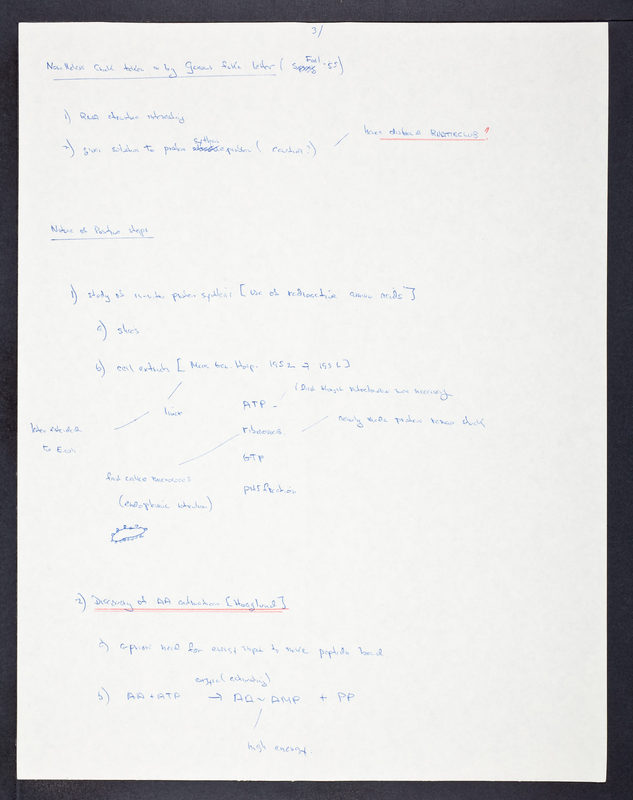 3/
Non Believers Crick taken in by Gamow fake letter ( Fall -55)
1) RNA structure interesting
2) give solution to protein synthesis problem ( reaction?)
hence disband RNATIECLUB ?
Nature of Positive steps
1) study of in-vitro protein synthesis [ Use of radioactive amino acids ]
a) slices
b) cell extracts [ Mass Gen. Hosp. 1952 → 1956 ]
liver
later extended
to E. coli
ATP -
(first thought mitochondria was necessary
ribosomes
newly made protein remain stuck
GTP
pH 5 fraction
first called microsomes
(endoplasmic reticulum)
2) Discovery of AA activation [Hoagland]
a) a priori need for energy input to make peptide bond
enzyme (activating)
b) AA + ATP → AA ~ AMP + PP
high energy